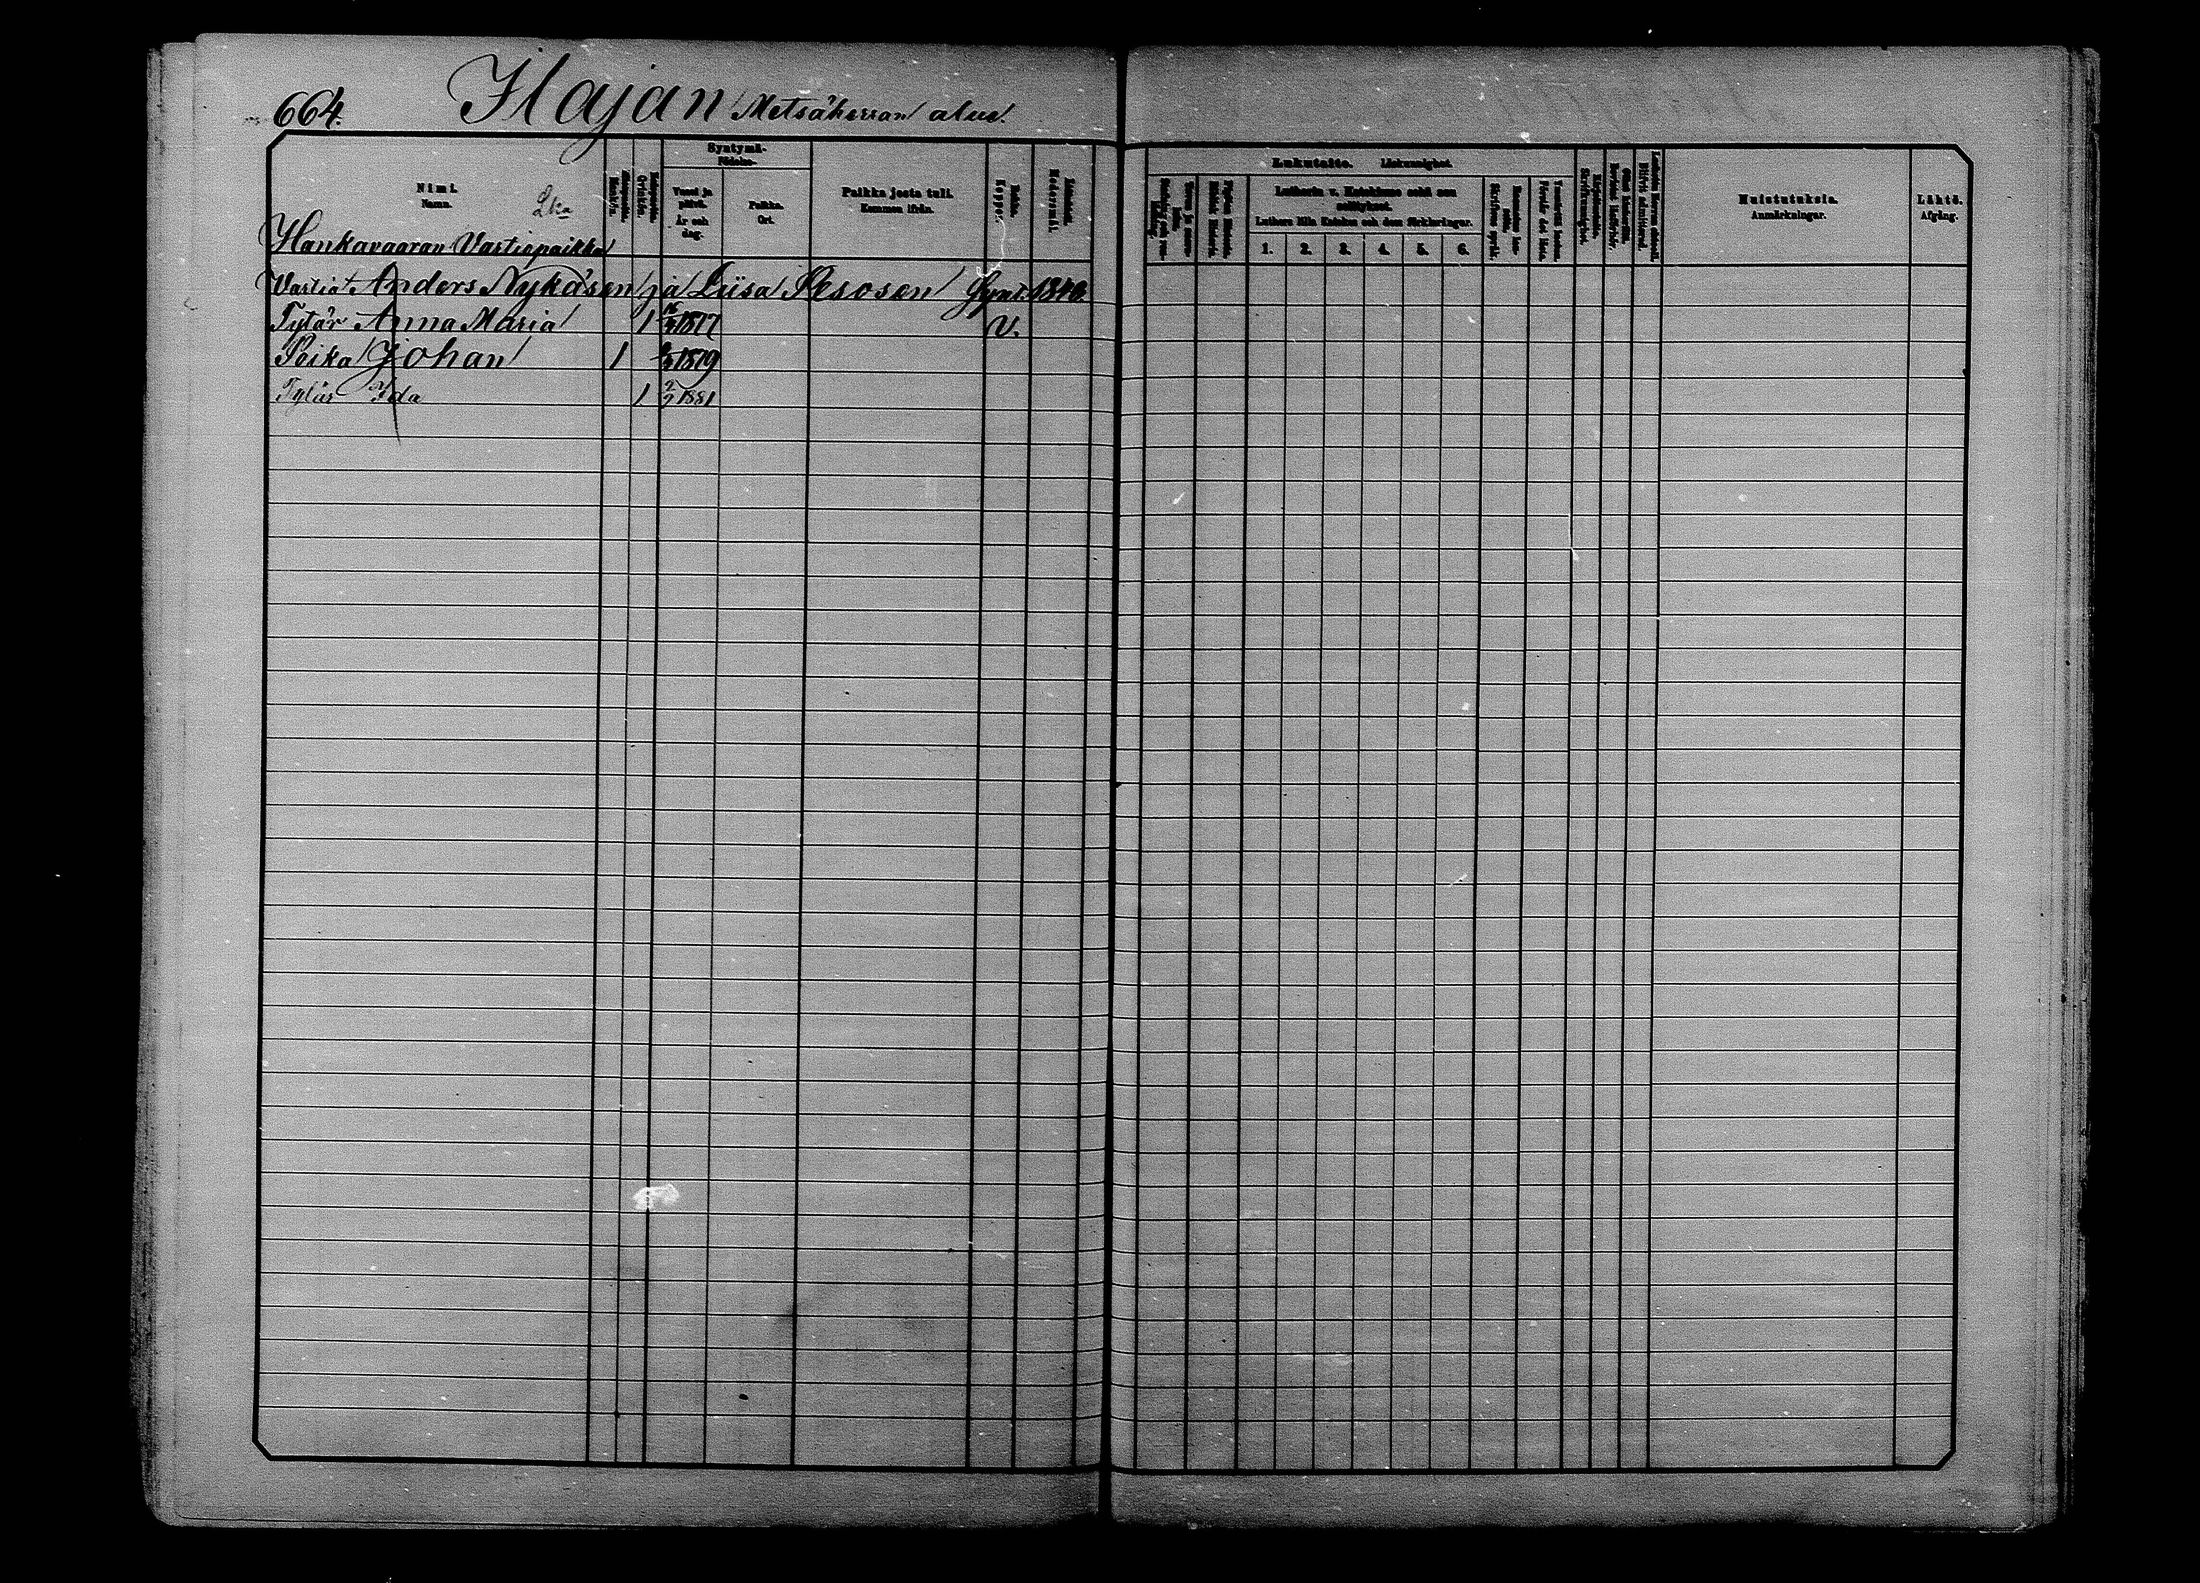 664. Ilajan Metsäherran alue.
Syntymä-
Födelse.
Nimi.
Namn.
Vuosi ja päivä.
År och dag.
Paikka.
Ort.
Paikka josta tuli.
Kommen ifrån.
Rokko.
Koppor.
Hankavaaran Vartiopaikka
Vartia Anders Nykäsen ja Liisa Pesosen Synt. 1846
Tytär Anna Maria 1 1877 V.
Poika Johan 1 1879
Tytär Ida 1 1881
Lukutaito. Läskunnighet.
Lutherin v. Katekismo sekä sen selitykset.
Luthers lilla Katekes och dess förklaringar.
1. 2. 3. 4. 5. 6.
Muistutuksia.
Anmärkningar.
Lähtö.
Afgång.